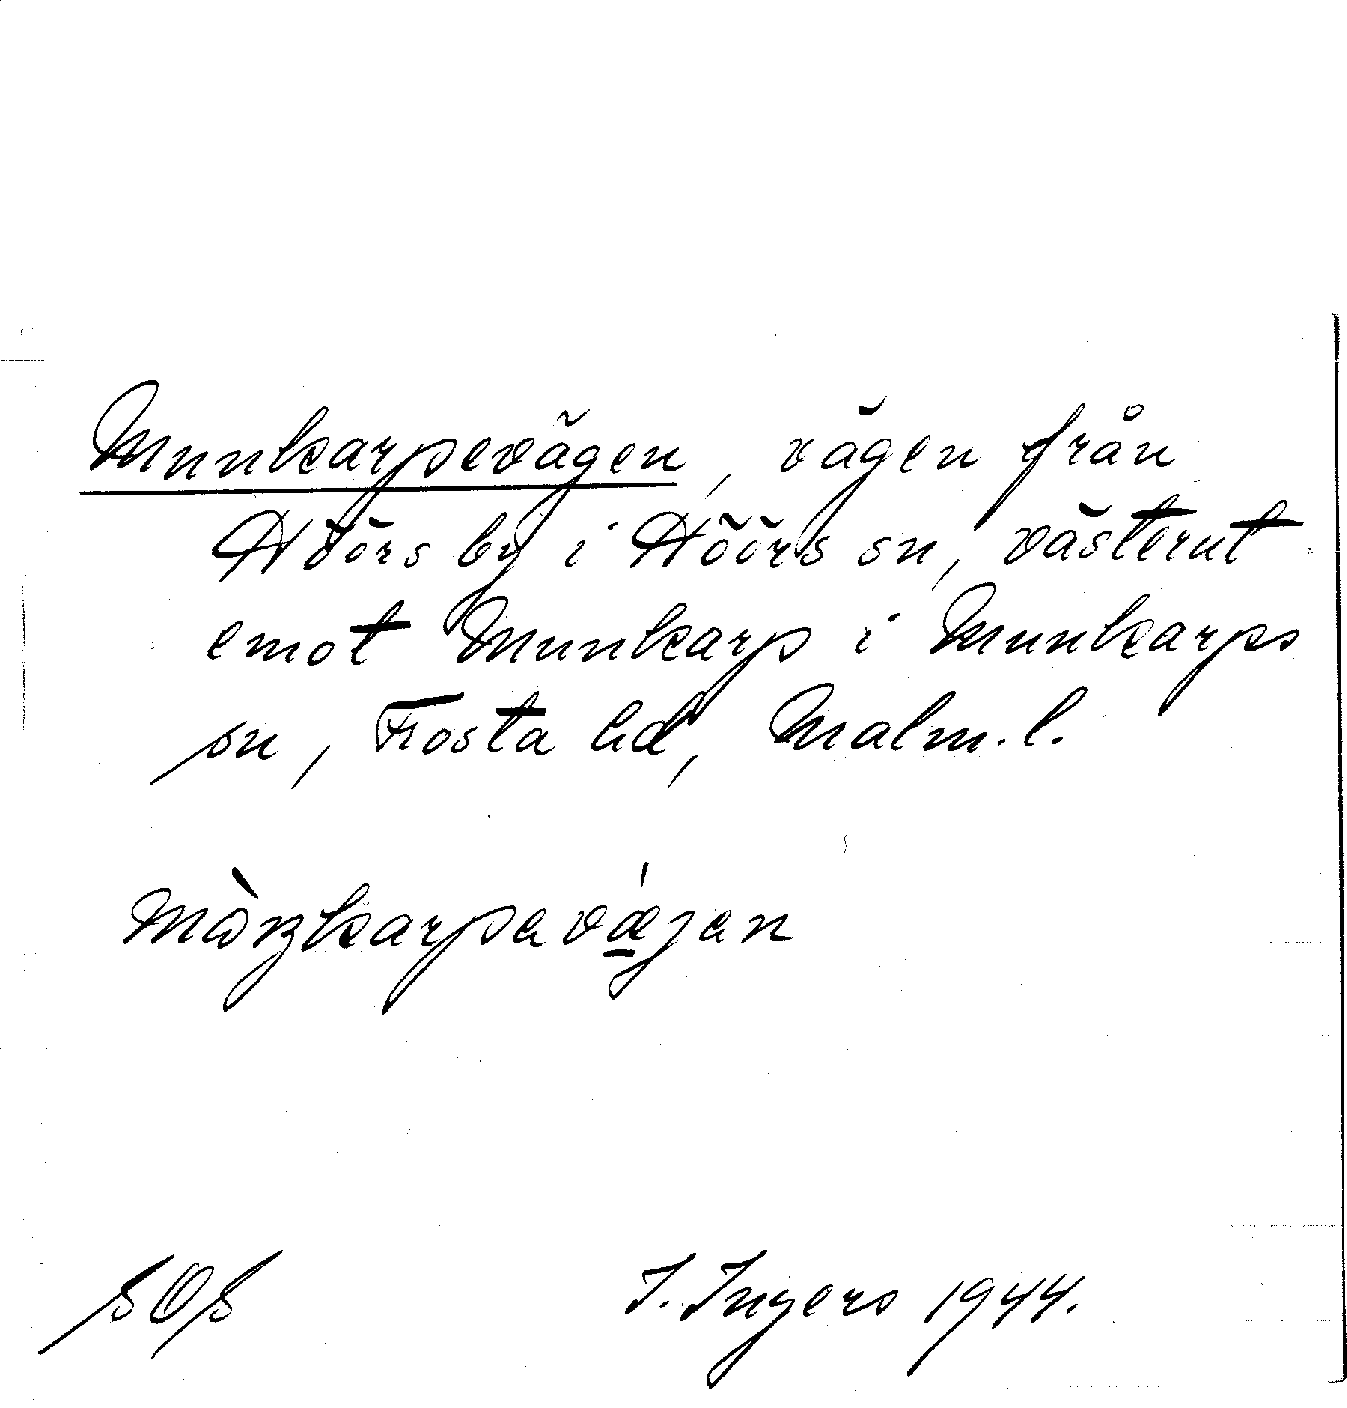 Munkarpevägen, vägen från
Höörs by i Höörs sn, västerut
emot Munkarp i Munkarps
sn, Frosta hd, Malm.l.
I. Ingers 1944.